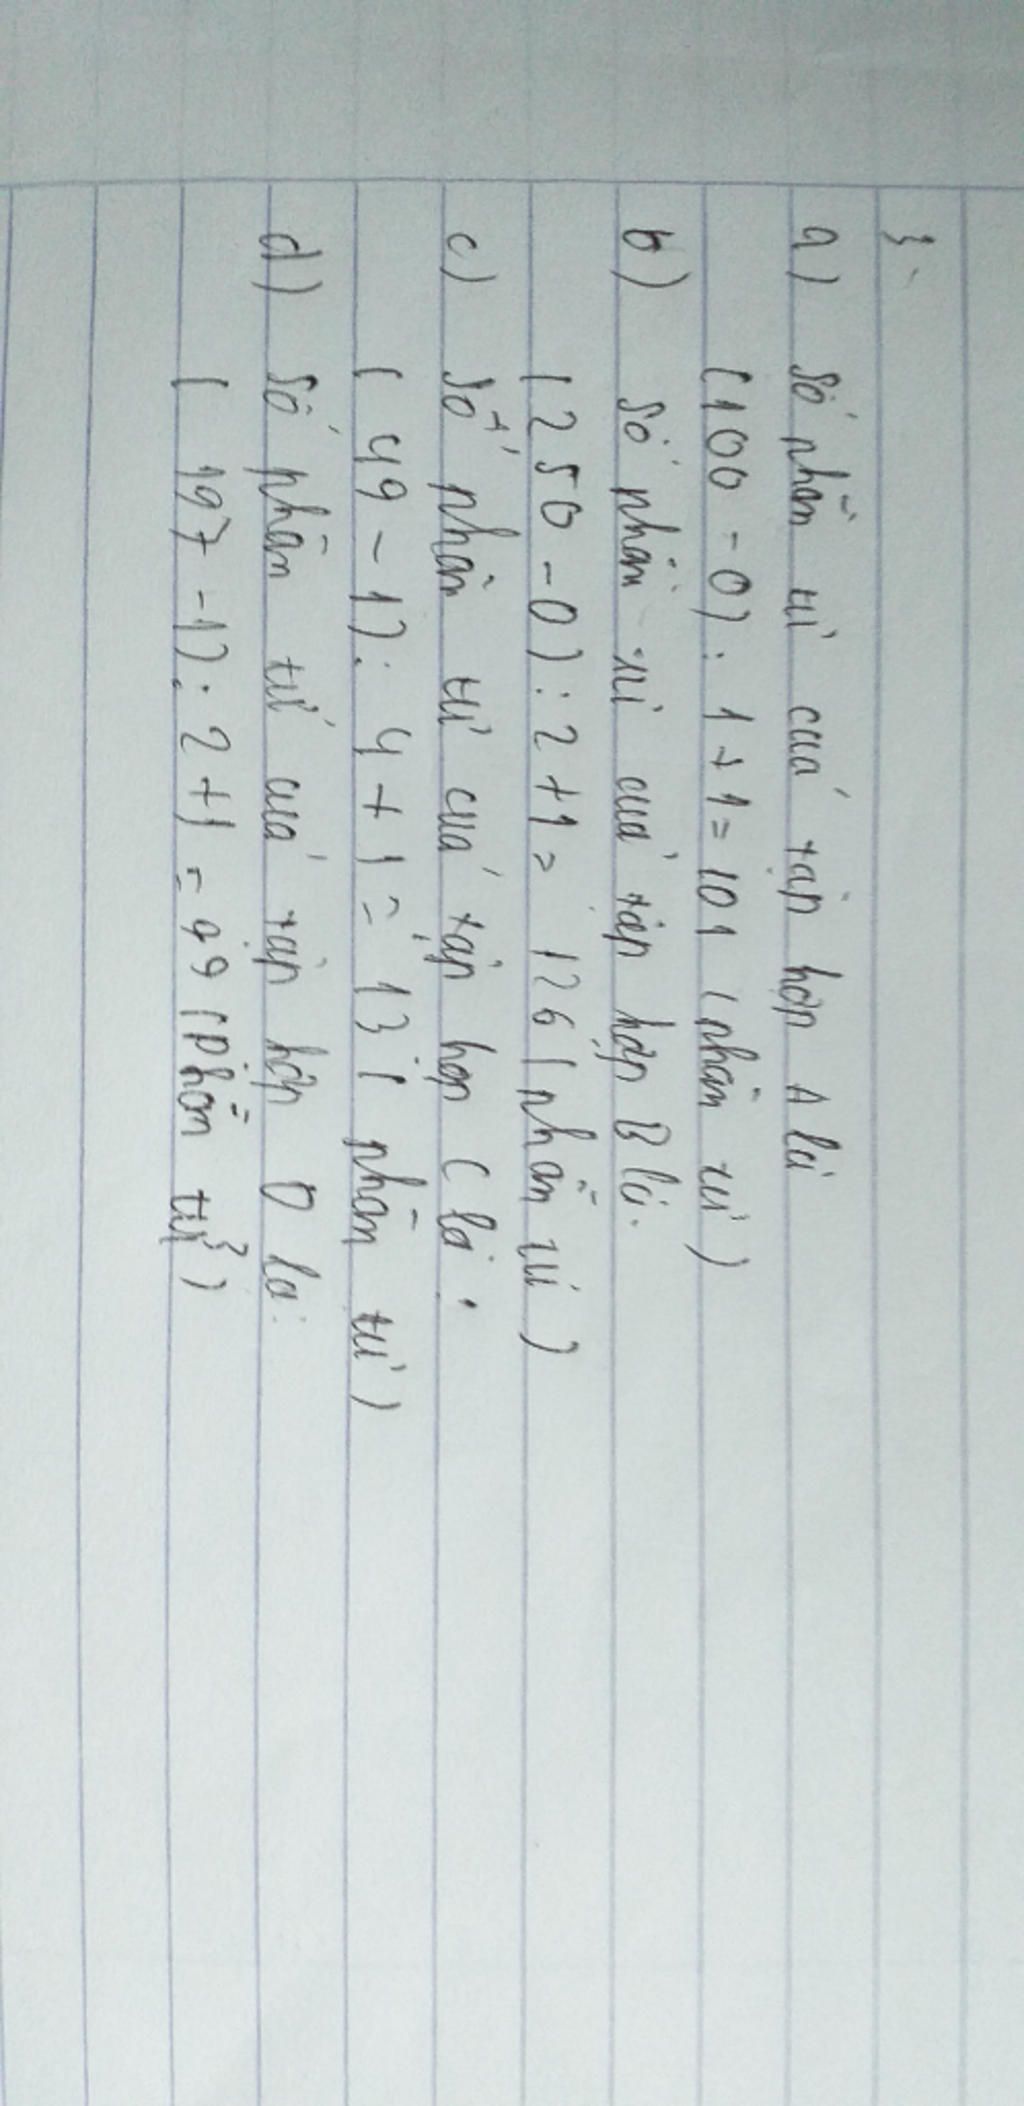 3.
a) số phần tử của tập hợp A là
(100 - 0) : 1 + 1 = 101 (phần tử)
b) số phần tử của tập hợp B là.
(250 - 0) : 2 + 1 = 126 (phần tử)
c) số phần tử của tập hợp C là :
(49 - 1) : 4 + 1 = 13 (phần tử)
d) số phần tử của tập hợp D là:
(197 - 1) : 2 + 1 = 99 (phần tử)